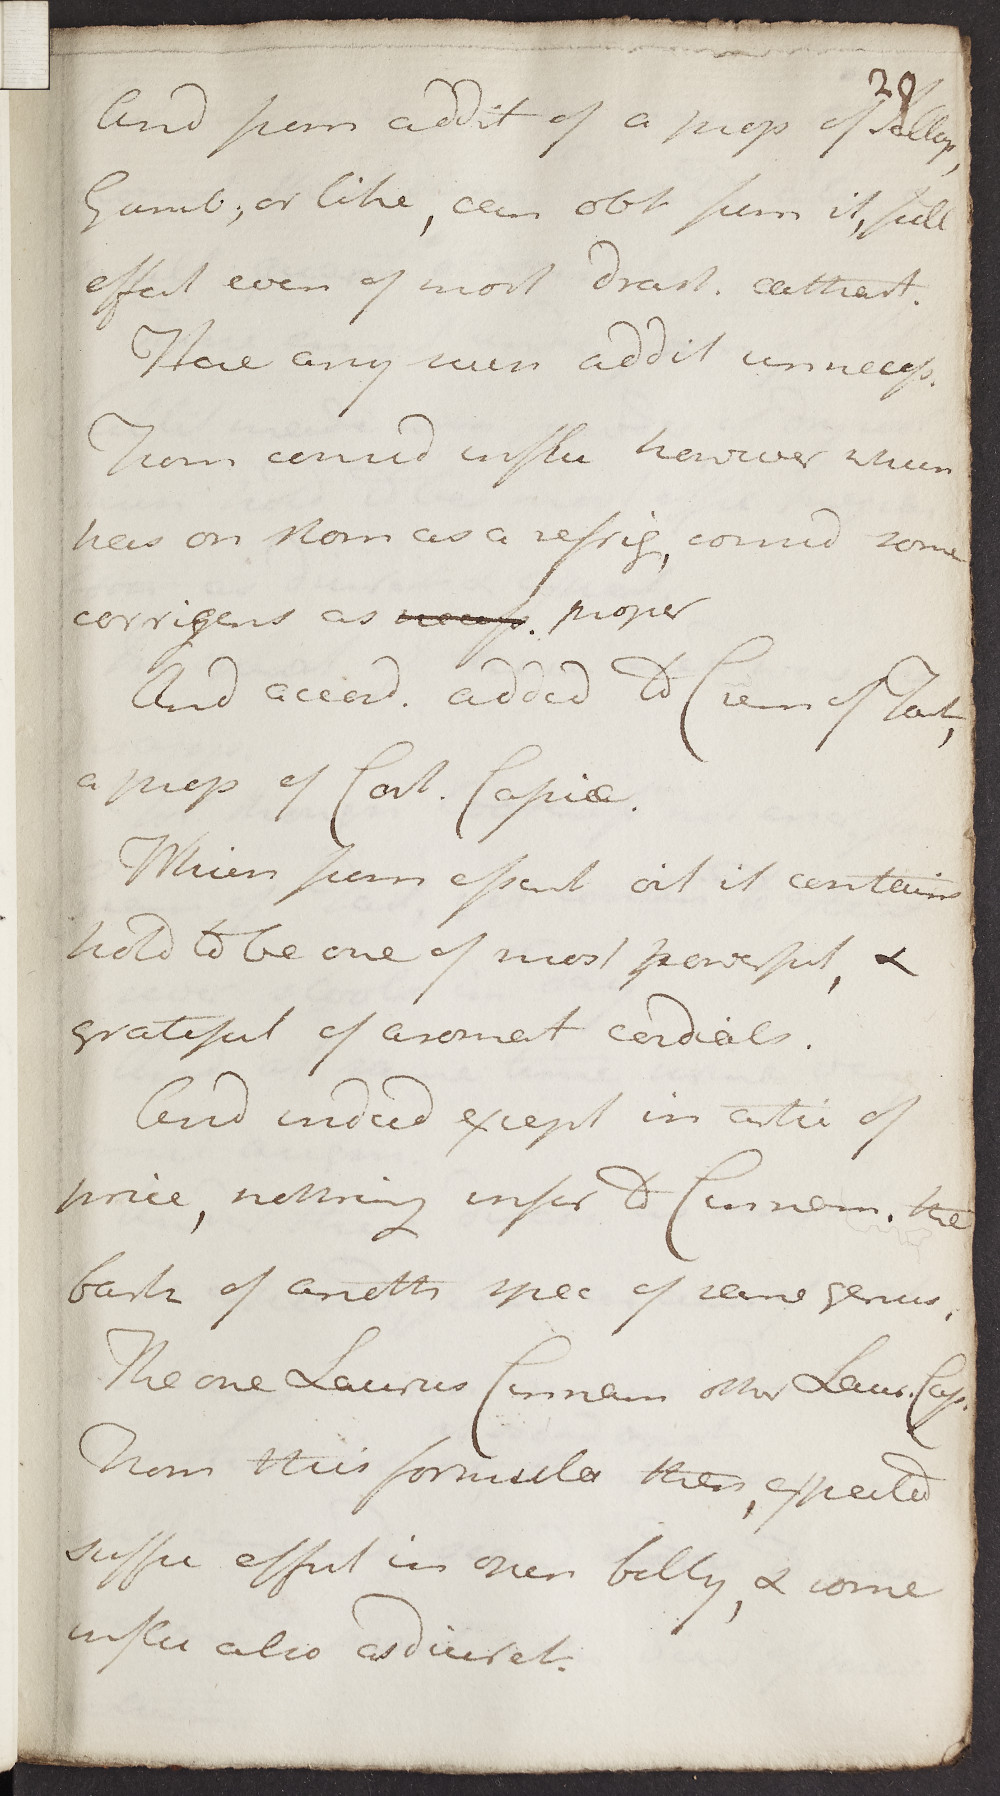 28
And from addit of a prop of Jallap,
Gamb; or like, can obt from it, full
effect even of most drast. cathart.
Here any such addit unnecess.
From consid influ however when
has on stom as a refrig, consid some
corrigens as necess. proper
And accord. added to Crem of Tart,
a prop of Cort. Cassiæ.
Which from essent oil it contains
held to be one of most powerful, &
grateful of aromat cordials.
And indeed except in artic of
price, nothing infer to Cinnam. the
bark of anoth spec of same genus.
The one Laurus Cinnam other Laur. Cas.
From this formula then, expected
suffic effect in open belly, & some
influ also as diuret.